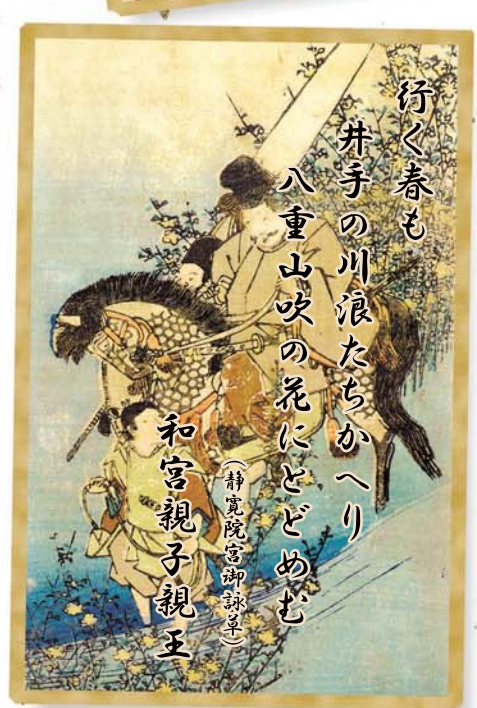 行く春も
井手の川浪たちかへり
八重山吹の花にとどめむ
(静寛院宮御詠草)
和宮親子親王